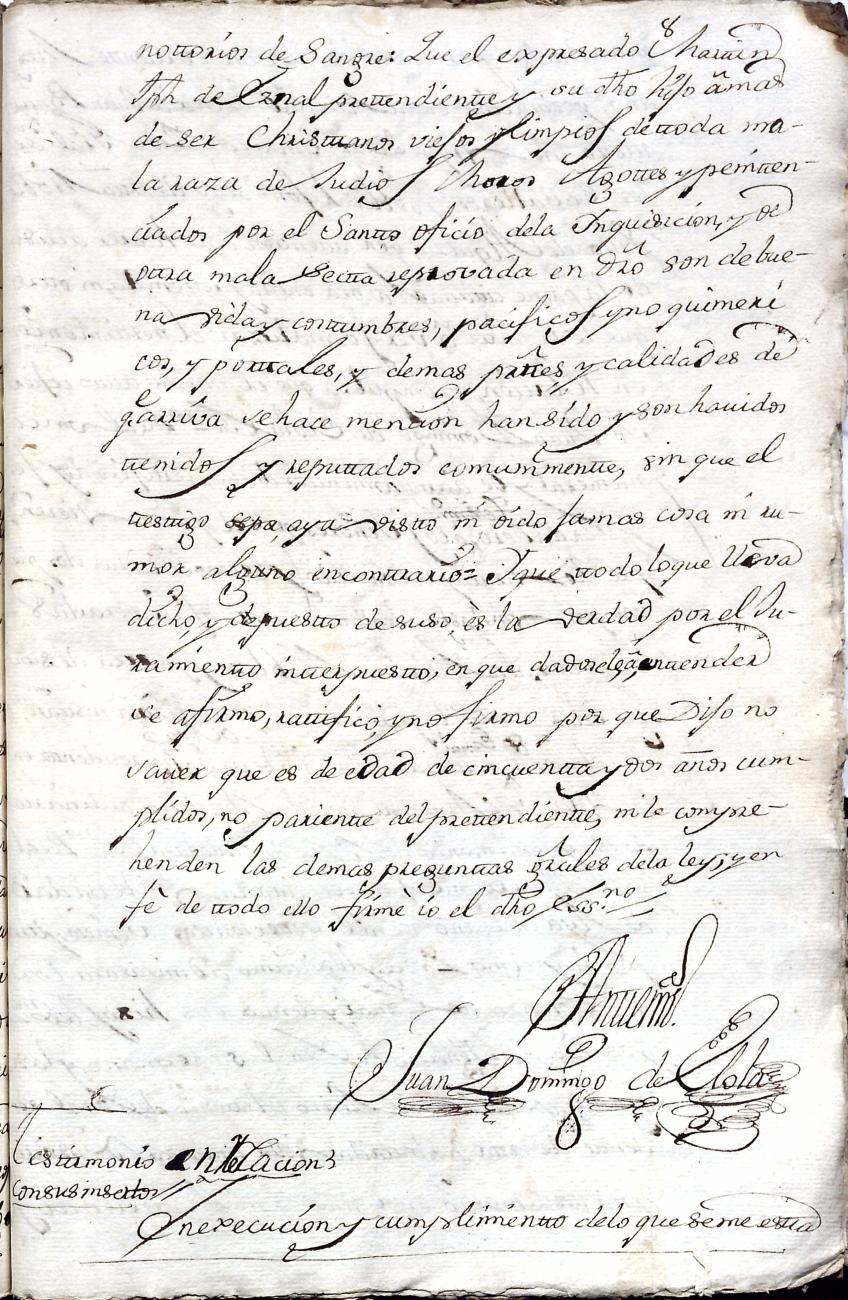 8
nottorios de Sangre: Que el expresado Martin
Jph. de Eznal prettendientte y su dho hijo a mas
de ser Christtianos viejos y limpios de ttoda ma-
la raza de Judios Moros Agottes y penitten-
ciados por el Santto oficio dela Inquisicion, y de
ottra mala Sectta reprovada en dro son de bue-
na vida y costtumbres, pacificos y no quimeri
cos, y porttales, y demas parttes y calidades de
q arriva se hace mencion han sido y son havidos
ttenidos y reputtados comunmentte, sin que el
ttesttigo sepa, aya visttto ni oido jamas cosa ni ru-
mor alguno en conttrario= Y que ttodo lo que lleva
dicho, y depuestto de suso, es la verdad por el Ju-
ramentto intterpuestto, en que dadosele a enttender
se afirmo, rattifico, y no firmo por que Dijo no
saver que es de edad de cincuentta y dos años cum-
plidos, no parientte del prettendientte, ni le compre-
henden las demas preguntas grales dela ley, y en
fè de ttodo ello firmè io el dho Ess.no
Antte mi
Juan Domingo de
Testtimonio en Relacion
con sus insertos
En execucion y cumplimientto de lo que se me estta